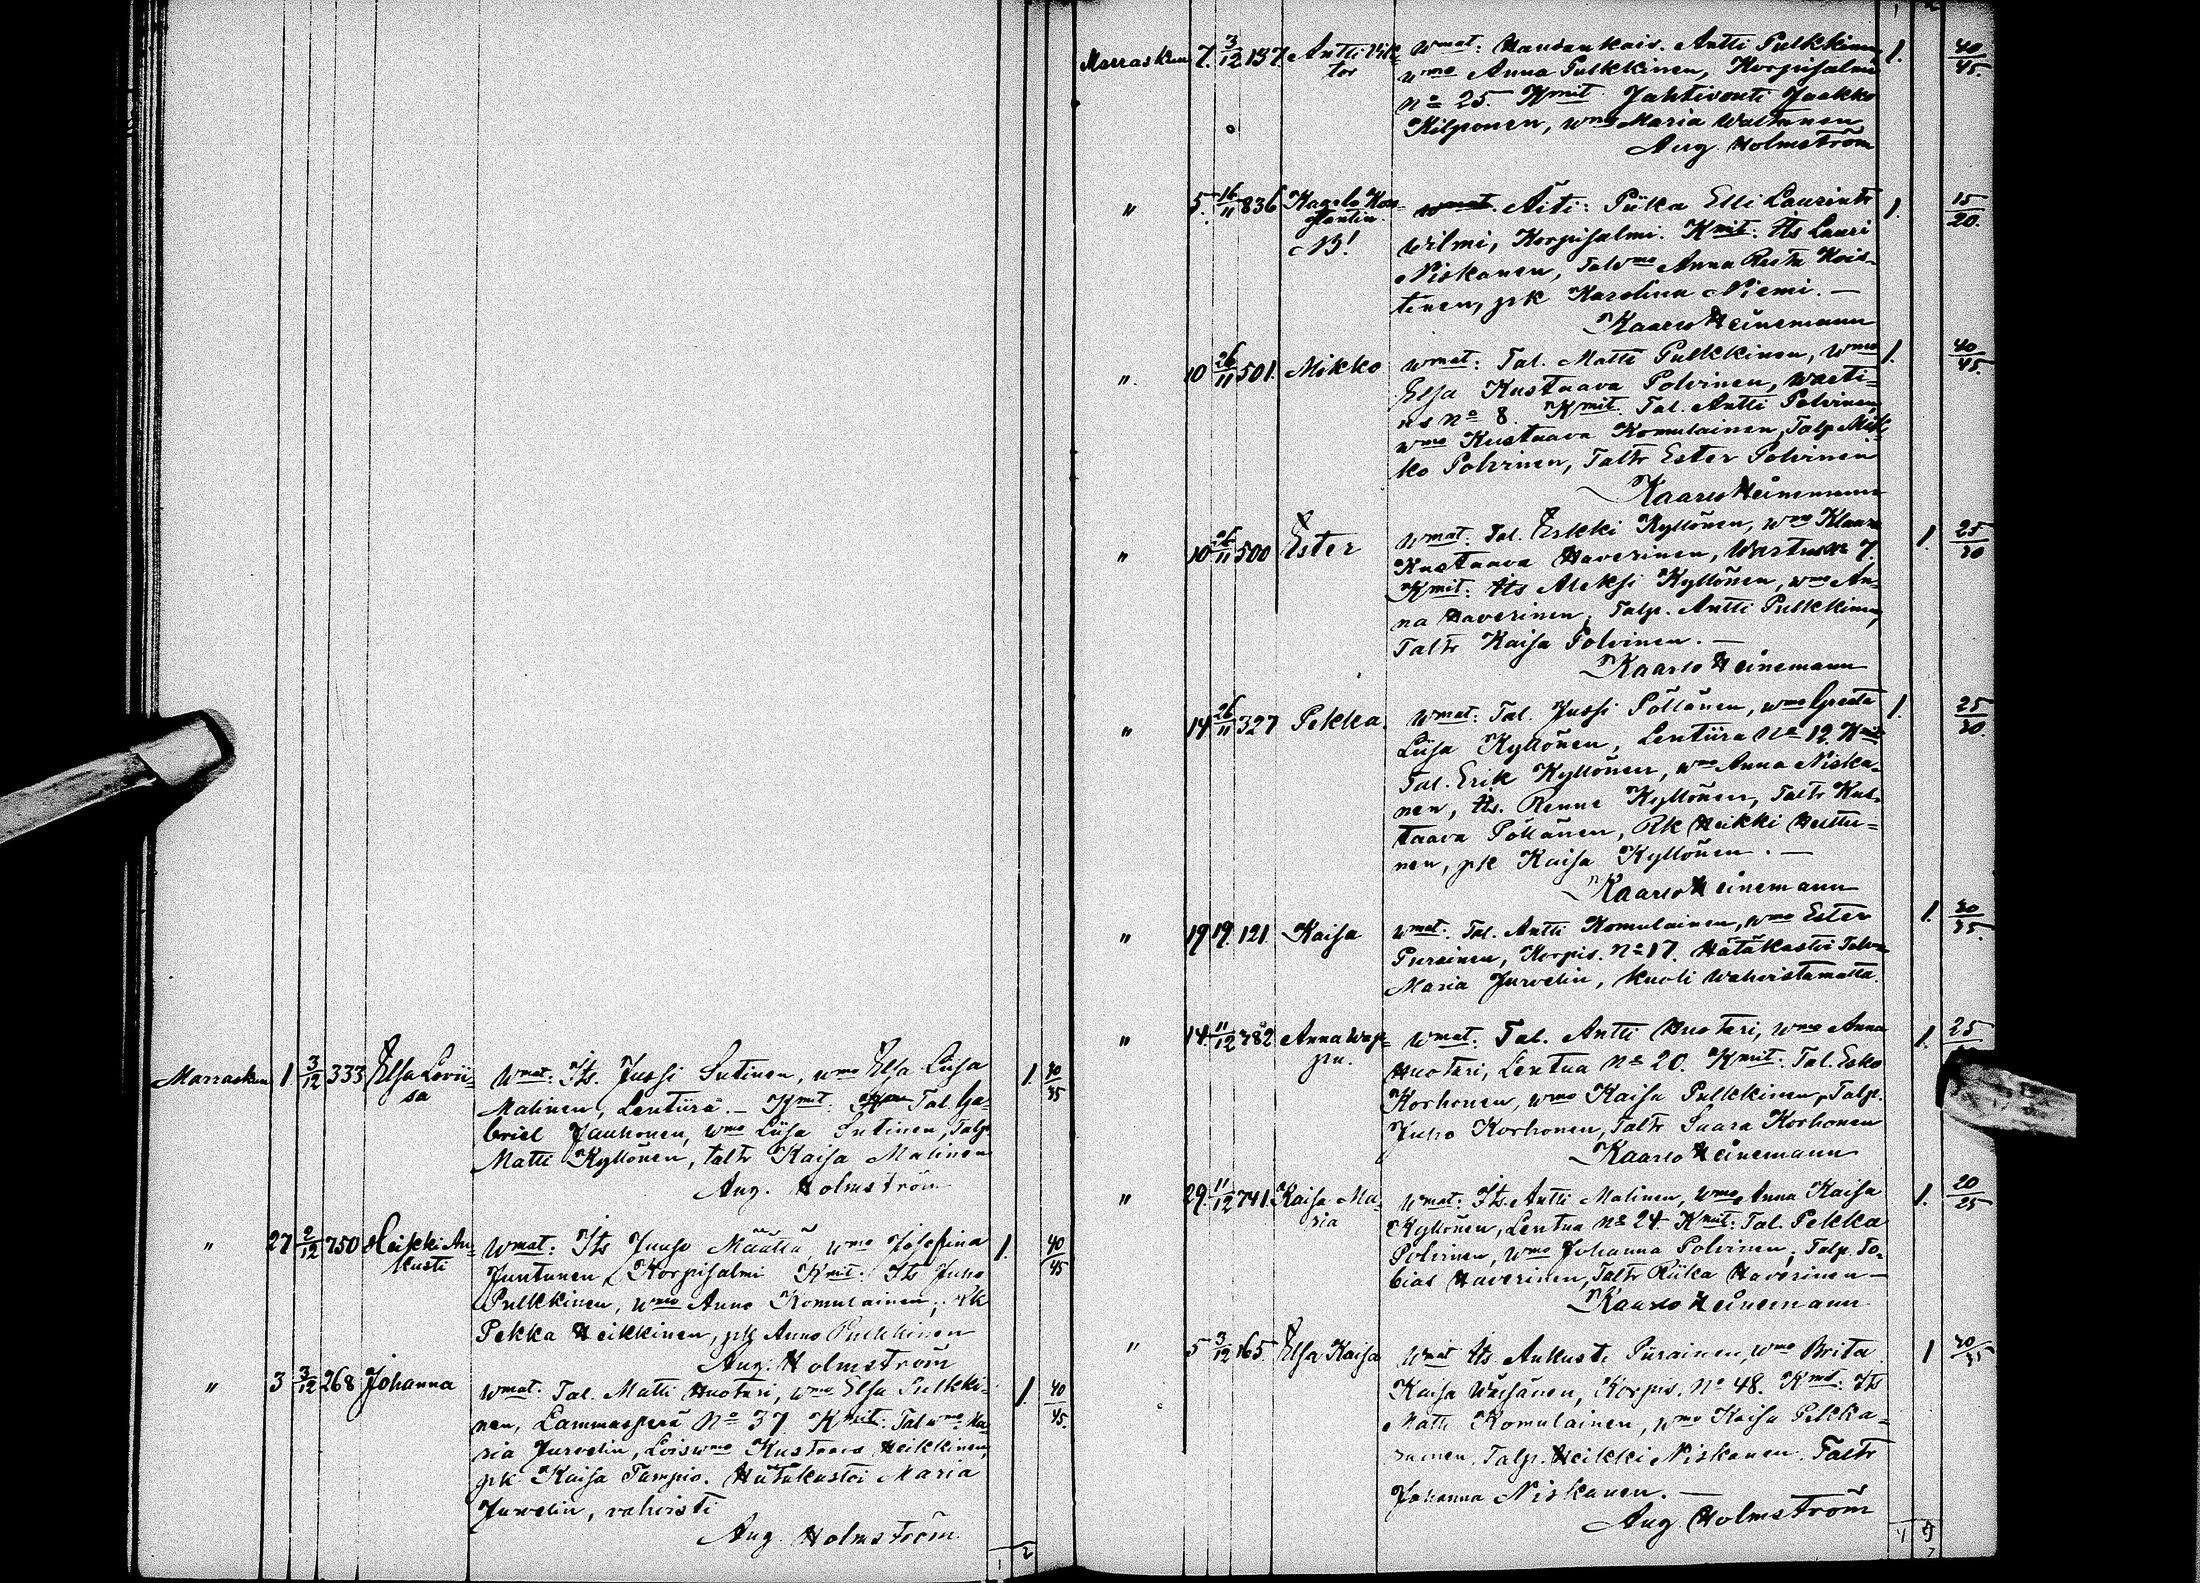 Marraskuu 1 3/12 333 Elsa Lovii-
sa
Wmat: Its. Jussi Sutinen, wmo Elsa Liisa 1. 30/35
Malinen, Lentiira. – Kmit: Tal. Ga-
briel Jauhonen, wmo Liisa Sutinen, Talp.
Matti Kyllönen, taltr Kaisa Malinen
Aug. Holmström
" 27 2/12 750 Heikki Au-
kusti
Wmat: Its Juuso Määttä, wmo Josefina 1. 40/45
Juntunen, Korpisalmi Kmit: Its Juho
Pulkkinen, wmo Anna Komulainen, rk
Pekka Heikkinen, pk Anna Pulkkinen
Aug. Holmström
" 3 3/12 268 Johanna
Wmat: Tal. Matti Huotari, wmo Elsa Pulkki- 1. 40/45.
nen, Lammasperä No 37. Kmit: Tal wmo Ma-
ria Jurvelin, Loiswmo Kustaava Heikkinen,
pk Kaisa Tampio. Hätäkastoi Maria
Jurvelin, vahvisti
Aug. Holmström
1 2
Marraskuu 7. 3/12 137. Antti Vik-
tor
Wmat: Haudankaiv. Antti Pulkkinen, 1. 40/45.
wmo Anna Pulkkinen, Korpisalmi
No 25. Kmit Jahtivouti Jaakko
Kilponen, wmo Maria
Aug. Holmström
" 5. 16/11 836 Kaarlo Kon-
stantin.
NB!
Wmat. Äiti: Piika Elli Laurintr 1. 15/20.
Wilmi, Korpisalmi. Kmit: Its Lauri
Niskanen, Talwmo Anna Reeta Kois-
tinen, pk Karolina Niemi. –
Kaarlo Heinemann
" 10 26/11 501. Mikko
Wmat: Tal. Matti Pulkkinen, wmo 1. 40/45.
Elsa Kustaava Polvinen, Waeti-
us No 8. Kmit. Tal. Antti Polvinen,
wmo Kustaava Komulainen, Talp. Mik-
ko Polvinen, Taltr Ester Polvinen
Kaarlo Heinemann
" 10 26/11 500 Ester
Wmat: Tal. Erkki Kyllönen, wmo Klaara 1. 25/30
Kustaava Haverinen, 7.
Kmit: Its Aleksi Kyllönen, wmo An-
na Haverinen, Talp. Antti Pulkkinen,
Taltr Kaisa Polvinen. –
Kaarlo Heinemann
" 14 26/11 327 Pekka.
Wmat: Tal. Jussi Pöllänen, wmo Greeta 1. 25/30.
Liisa Kyllönen, Lentiira No 12. Kmit
Tal. Erik Kyllönen, wmo Anna Niska-
nen, Its. Renne Kyllönen, Taltr Kus-
taava Pöllänen, Rk Heikki Heittu-
nen, pk Kaisa Kyllönen. –
Kaarlo Heinemann
" 19 19. 121. Kaisa
Wmat. Tal. Antti Komulainen, wmo Ester 1. 30/35.
Piirainen, Korpis. No 17. Hätäkastoi Talwmo
Maria Jurvelin, kuoli wahvistamatta.
" 14. 11/12 382 Anna Wap-
pu.
Wmat: Tal. Antti Huotari, wmo Anna 1. 25
Huotari, Lentua No 20. Kmit: Tal. Esko
Korhonen, wmo Kaisa Pulkkinen, Talp.
Juho Korhonen, Taltr Saara Korhonen
Kaarlo Heinemann
" 29. 11/12 741. Kaisa Ma-
ria
Wmat: Its. Antti Malinen, wmo Anna Kaisa 1. 20/25
Kyllönen, Lentua No 24. Kmit: Tal. Pekka
Polvinen, wmo Johanna Polvinen, Talp. To-
bias Haverinen, Taltr Riika Haverinen –
Kaarlo Heinemann
" 5 3/12 165. Elsa Kaisa
Wmat Its Aukusti Piirainen, wmo Brita 1 30/35
Kaisa Väisänen, Korpis. No 48. Kmit: Its
Matti Komulainen, wmo Kaisa Pekka-
rainen, Talp. Heikki Niskanen, Taltr
Johanna Niskanen. –
Aug Holmström